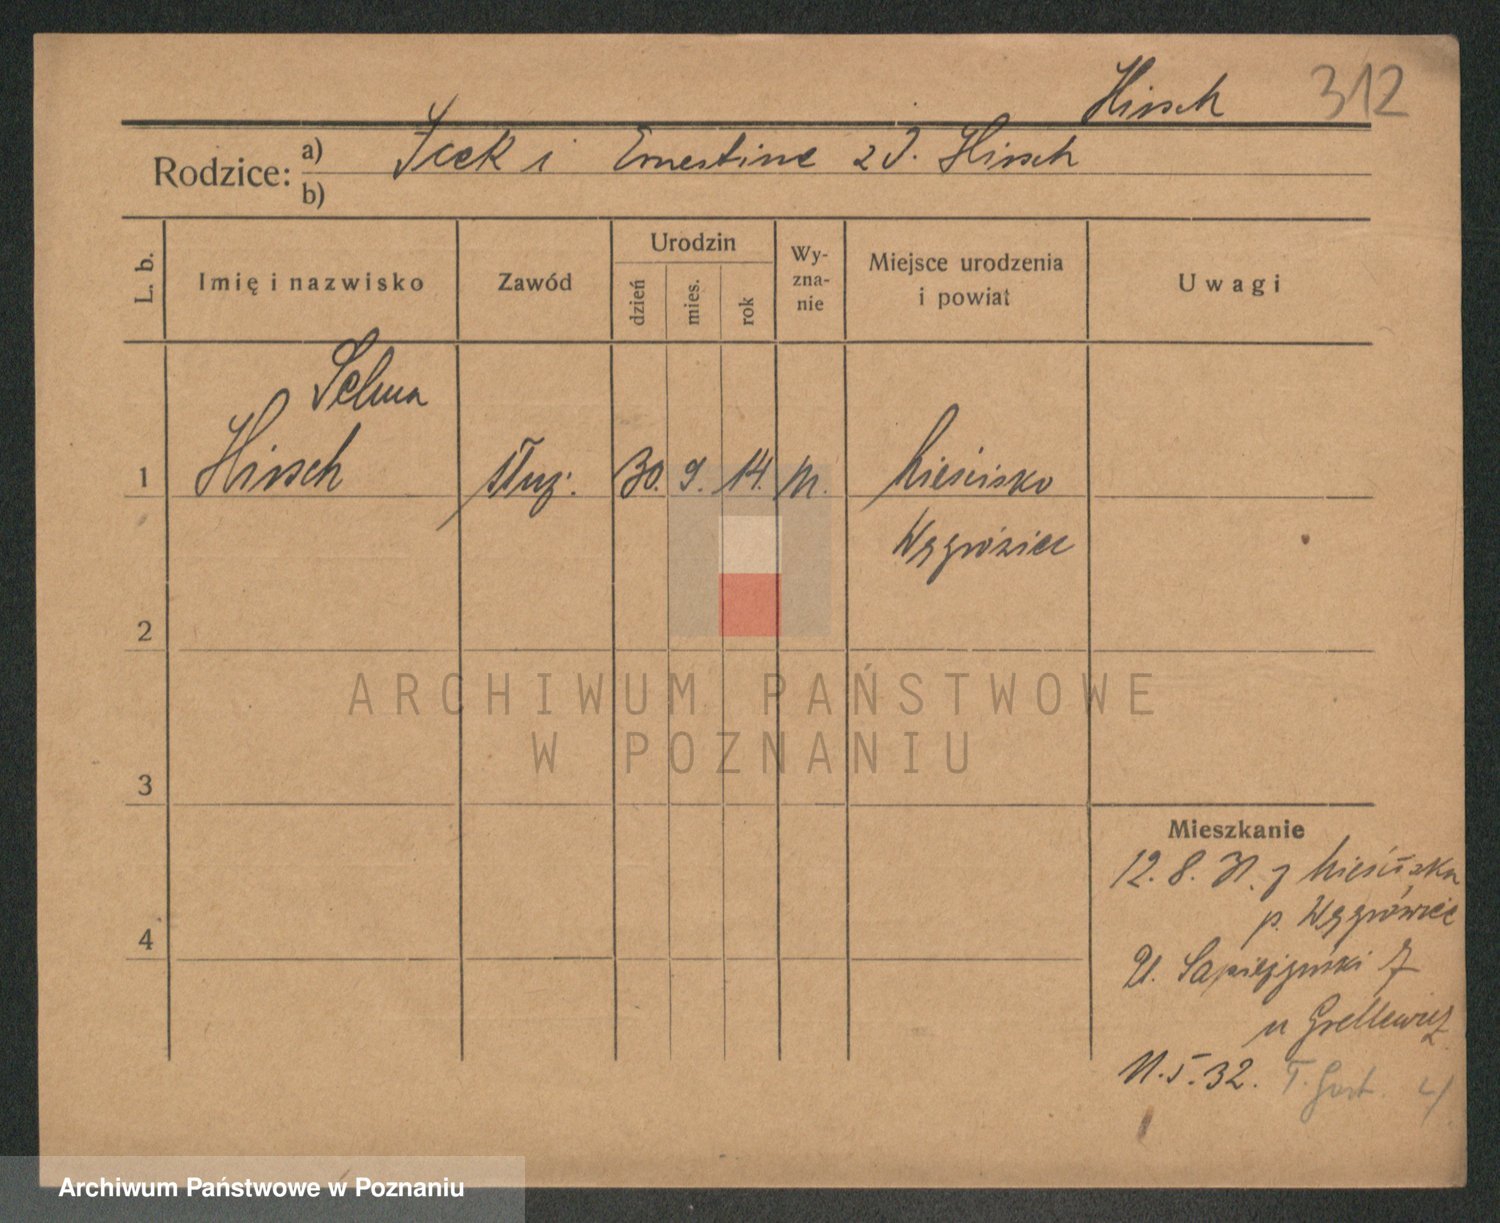 Hirsch 312
Rodzice: a) Icek i Ernestine z d. Hirsch
b)
L. b.
Imię i nazwisko
Zawód
Urodzin
dzień
mies.
rok
Wy-
zna-
nie
Miejsce urodzenia
i powiat
Uwagi
Selma
1 Hirsch służ. 30. 9. 14. m. Mieścisko
Wągrowiec
2
3
4
Mieszkanie
12. 8. 31. z Mieściska
p. Wągrowiec
Pl. Sapieżyński 7
u Grellewicz
11.5.32.
ARCHIWUM PAŃSTWOWE
W POZNANIU
Archiwum Państwowe w Poznaniu